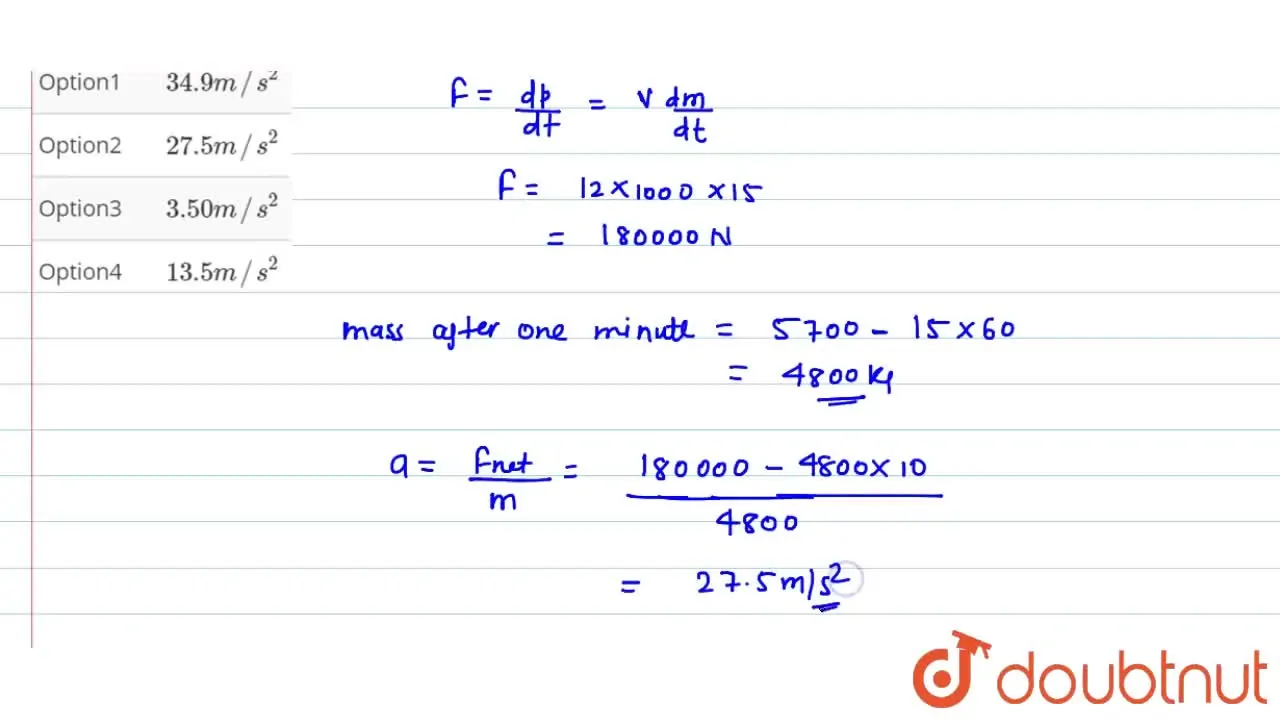 Option1 34.9m/s²
Option2 27.5m/s²
Option3 3.50m/s²
Option4 13.5m/s²
F = dp/dt = v dm/dt
F = 12×1000×15
= 180000 N
mass after one minute = 5700 - 15×60
= 4800 Kg
a = Fnet/m = 180000 - 4800×10 / 4800
= 27.5 m/s²
doubtnut